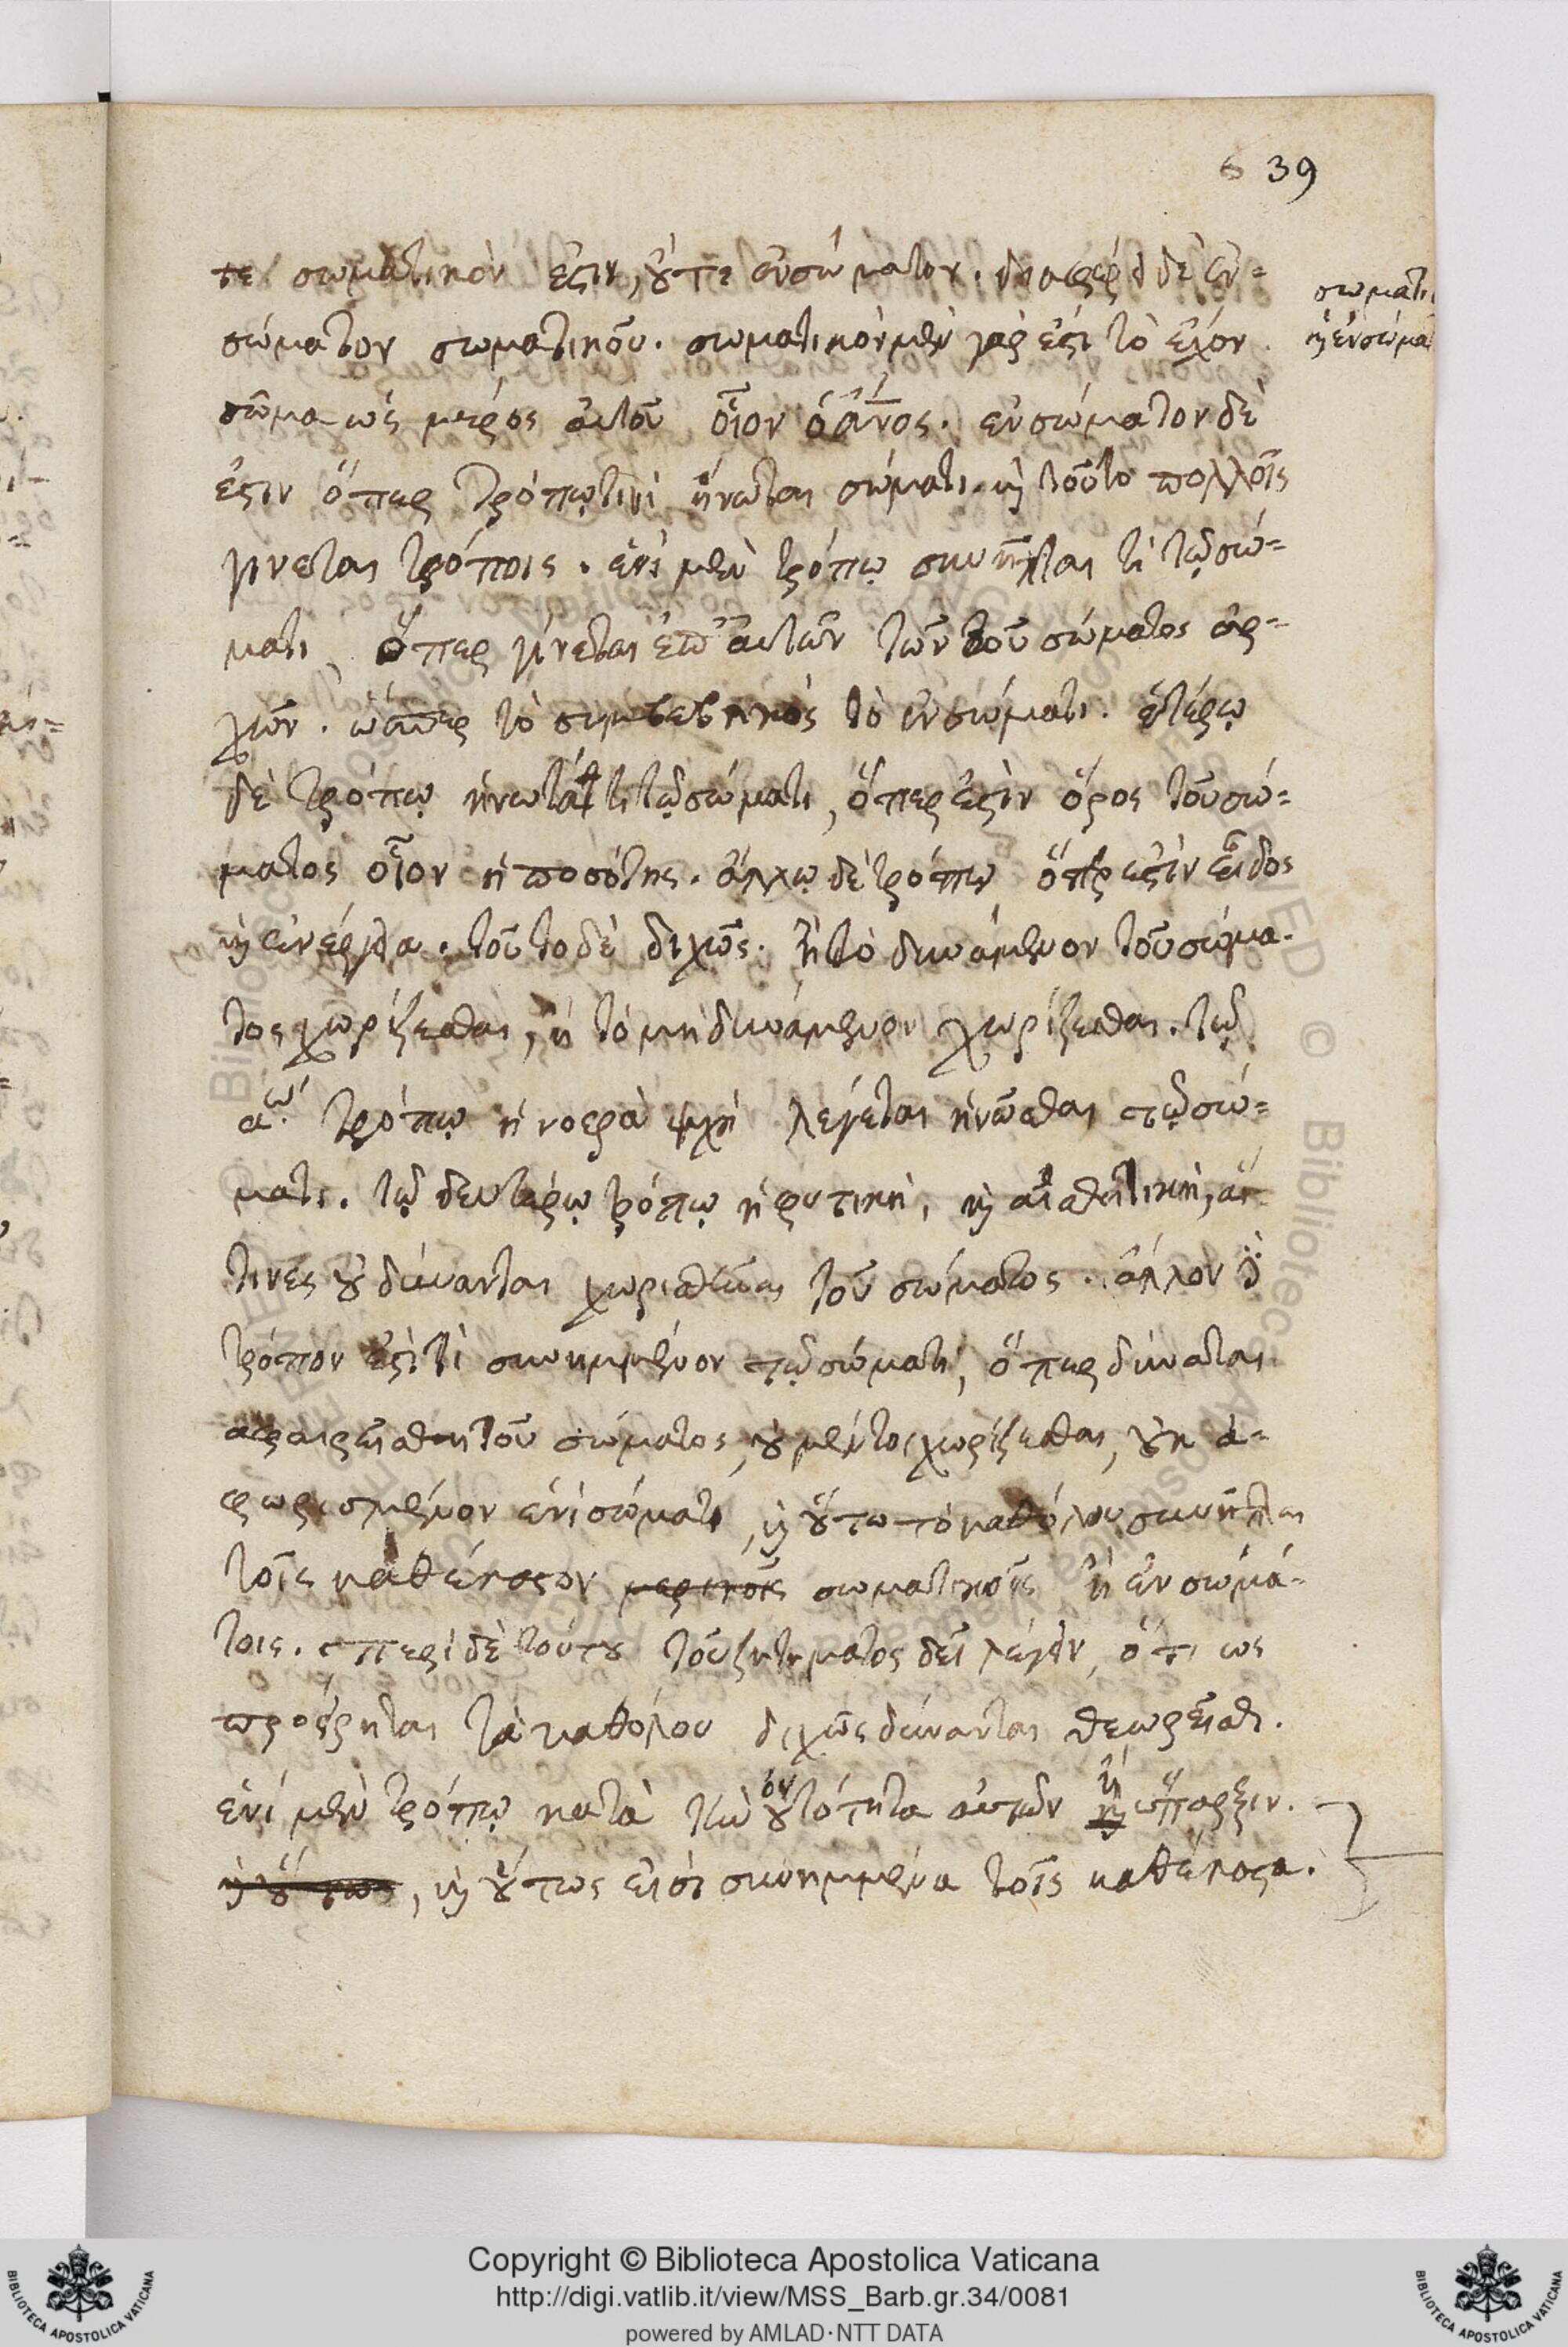 39
τε σωματικόν ἐστιν, οὔτε ἐνσώματον. διαφέρει δὲ ἐν-
σώματον σωματικοῦ. σωματικὸν μὲν γάρ ἐστι τὸ ἔχον
σωματι
καὶ ἐνσώμα
σῶμα ὡς μέρος αὐτοῦ οἷον ὁ ἄνος. ἐνσώματον δέ
ἐστιν ὅπερ τρόπῳ τινὶ ἥνωται σώματι. καὶ τοῦτο πολλοῖς
γίνεται τρόποις. ἑνὶ μὲν τρόπῳ συνῆπται τὶ τῷ σώ-
ματι, ὅπερ γίνεται ἐπ' αὐτῶν τῶν τοῦ σώματος ἀρ-
χῶν. ὥσπερ τὸ συμβεβηκὸς τὸ ἐν σώματι. ἑτέρῳ
δὲ τρόπῳ ἥνωταί τι τῷ σώματι, ὅπερ ἐστὶν ὅρος τοῦ σώ-
ματος οἷον ἡ ποσότης. ἄλλῳ δὲ τρόπῳ ὅπερ ἐστὶν εἶδος
καὶ ἐνέργεια. τοῦτο δὲ διχῶς. ἢ τὸ δυνάμενον τοῦ σώμα-
τος χωρίζεσθαι, ἢ τὸ μὴ δυνάμενον χωρίζεσθαι. τῷ
αῳ τρόπῳ ἡ νοερὰ ψχὴ λέγεται ἡνῶσθαι τῷ σώ-
ματι. τῷ δευτέρῳ τρόπῳ ἡ φυτικὴ, καὶ αἰσθητικὴ, αἵ-
τινες οὐ δύνανται χωρισθῆναι τοῦ σώματος. ἄλλον δὲ
τρόπον ἐστὶ τὶ συνημμένον τῷ σώματι, ὅπερ δύναται
ἀφαιρεῖσθαι τοῦ σώματος, οὐ μέντοι χωρίζεσθαι, οὐκ ἀ-
φωρισμένον ἑνὶ σώματι, καὶ οὕτω τὸ καθόλου συνῆπται
τοῖς καθέκαστον μερικοῖς σωματικοῖς ἢ ἐνσωμά-
τοις. περὶ δὲ τούτου τοῦ ζητήματος δεῖ λέγειν, ὅτι ὡς
προείρηται τὰ καθόλου διχῶς δύνανται θεωρεῖσθαι.
ἑνὶ μὲν τρόπῳ κατὰ τὴν ὀντότητα αὐτῶν ἢ ὕπαρξιν.
καὶ οὕτως, καὶ οὕτως εἰσὶ συνημμένα τοῖς καθέκαστα.
Copyright © Biblioteca Apostolica Vaticana
http://digi.vatlib.it/view/MSS_Barb.gr.34/0081
powered by AMLAD·NTT DATA